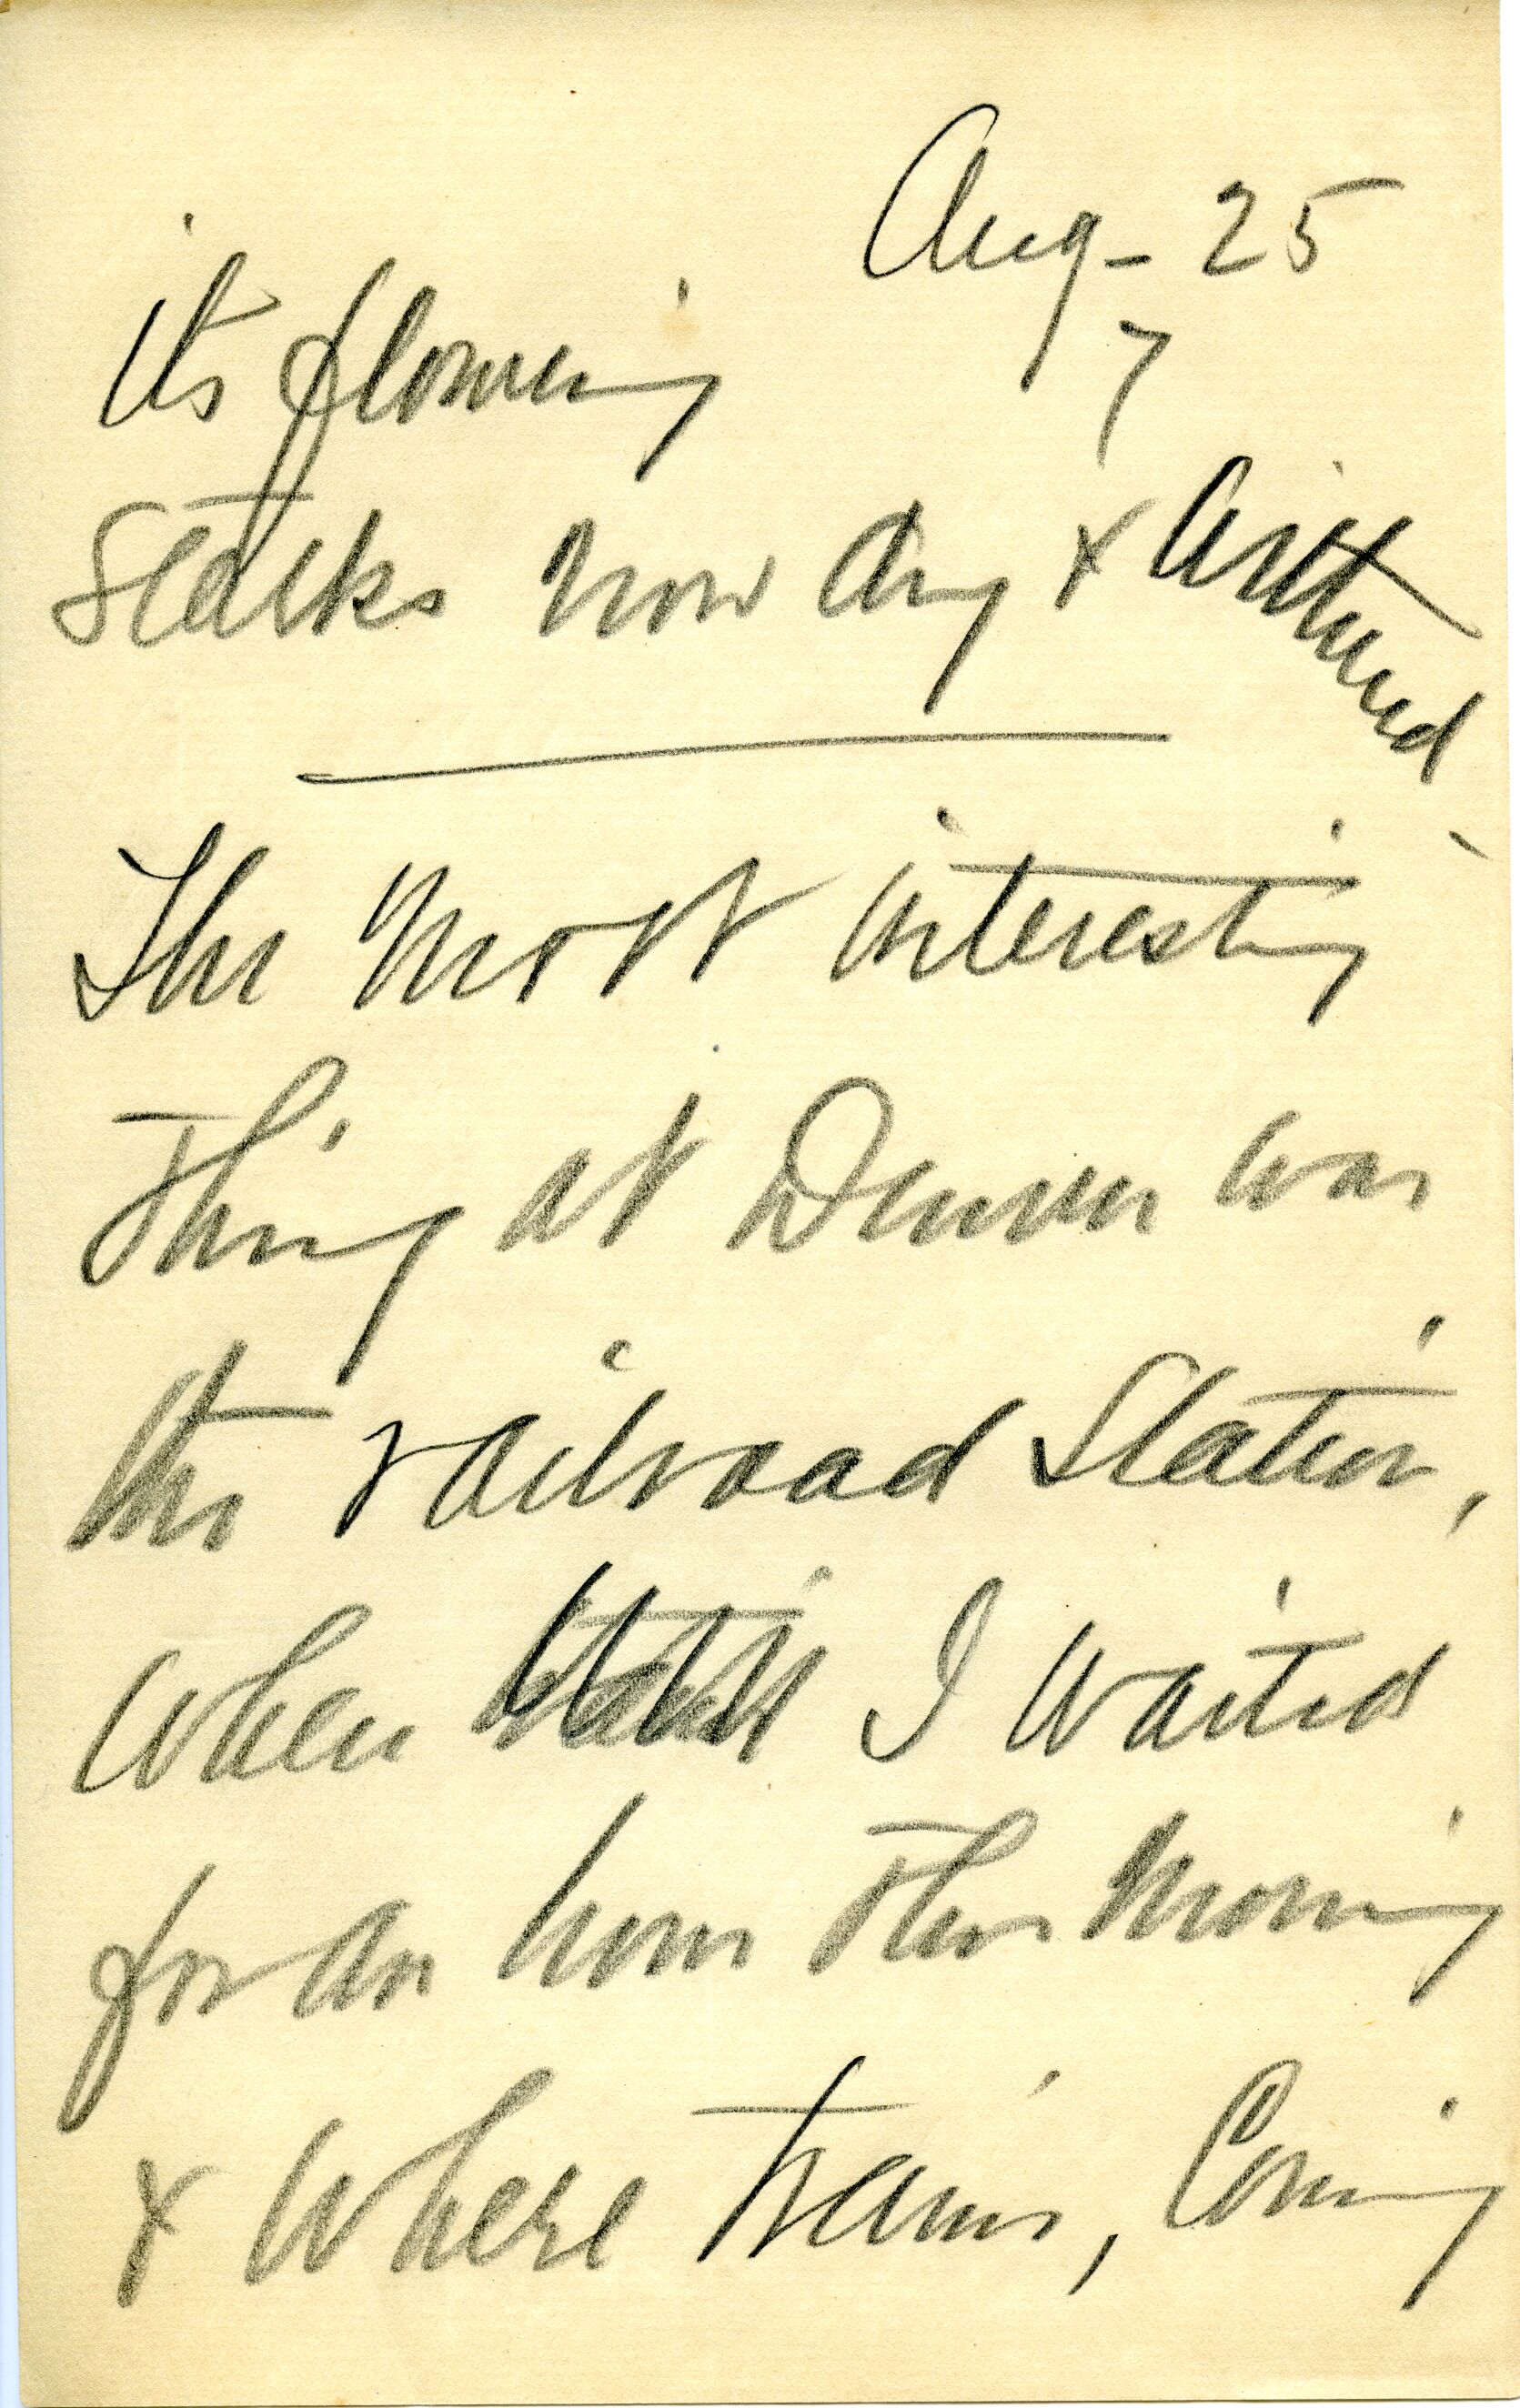 Aug – 25
7
its flowering
stalks now dry & withered –
The most interesting
thing at Denver was
the railroad station,
when I waited
for an hour this morning
& where trains, coming